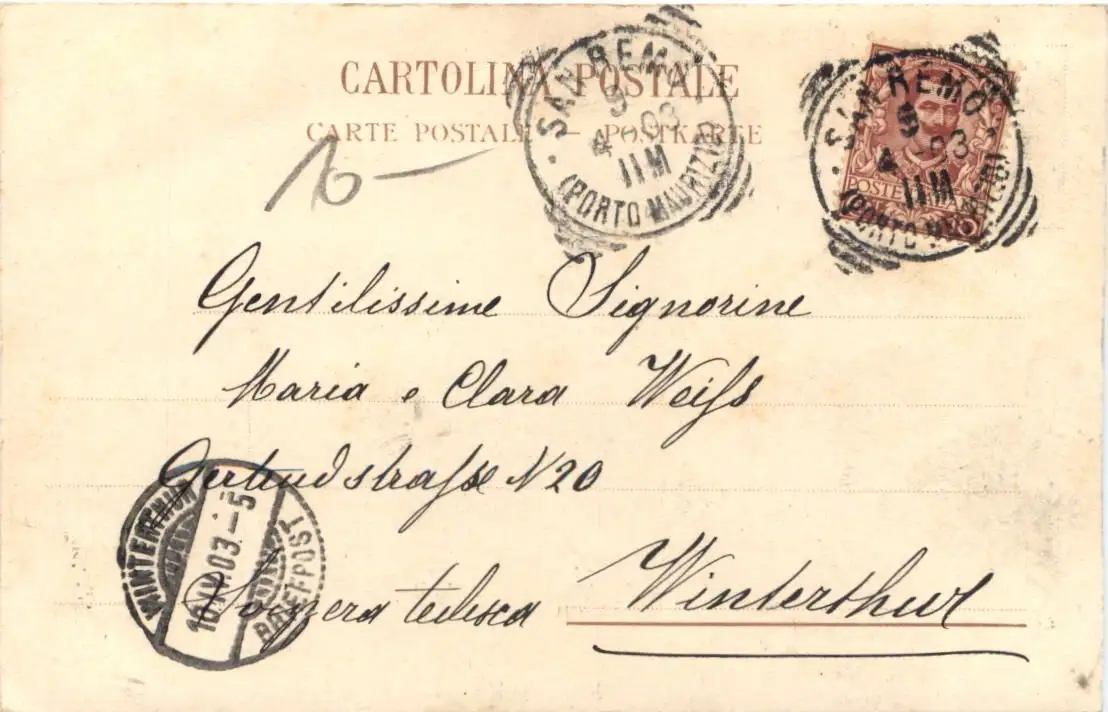 CARTOLINA POSTALE
CARTE POSTALE — POSTKARTE
SAN REMO
9
4 -03
11M
(PORTO MAURIZIO)
SAN REMO
9
4 -03
11M
(PORTO MAURIZIO)
POSTE
16 —
Gentilissime Signorine
Maria e Clara Weiſs
Gertrudstraſse N 20
Svizzera tedesca Winterthur
WINTERTHUR
10.IV.03-5
BRIEFPOST